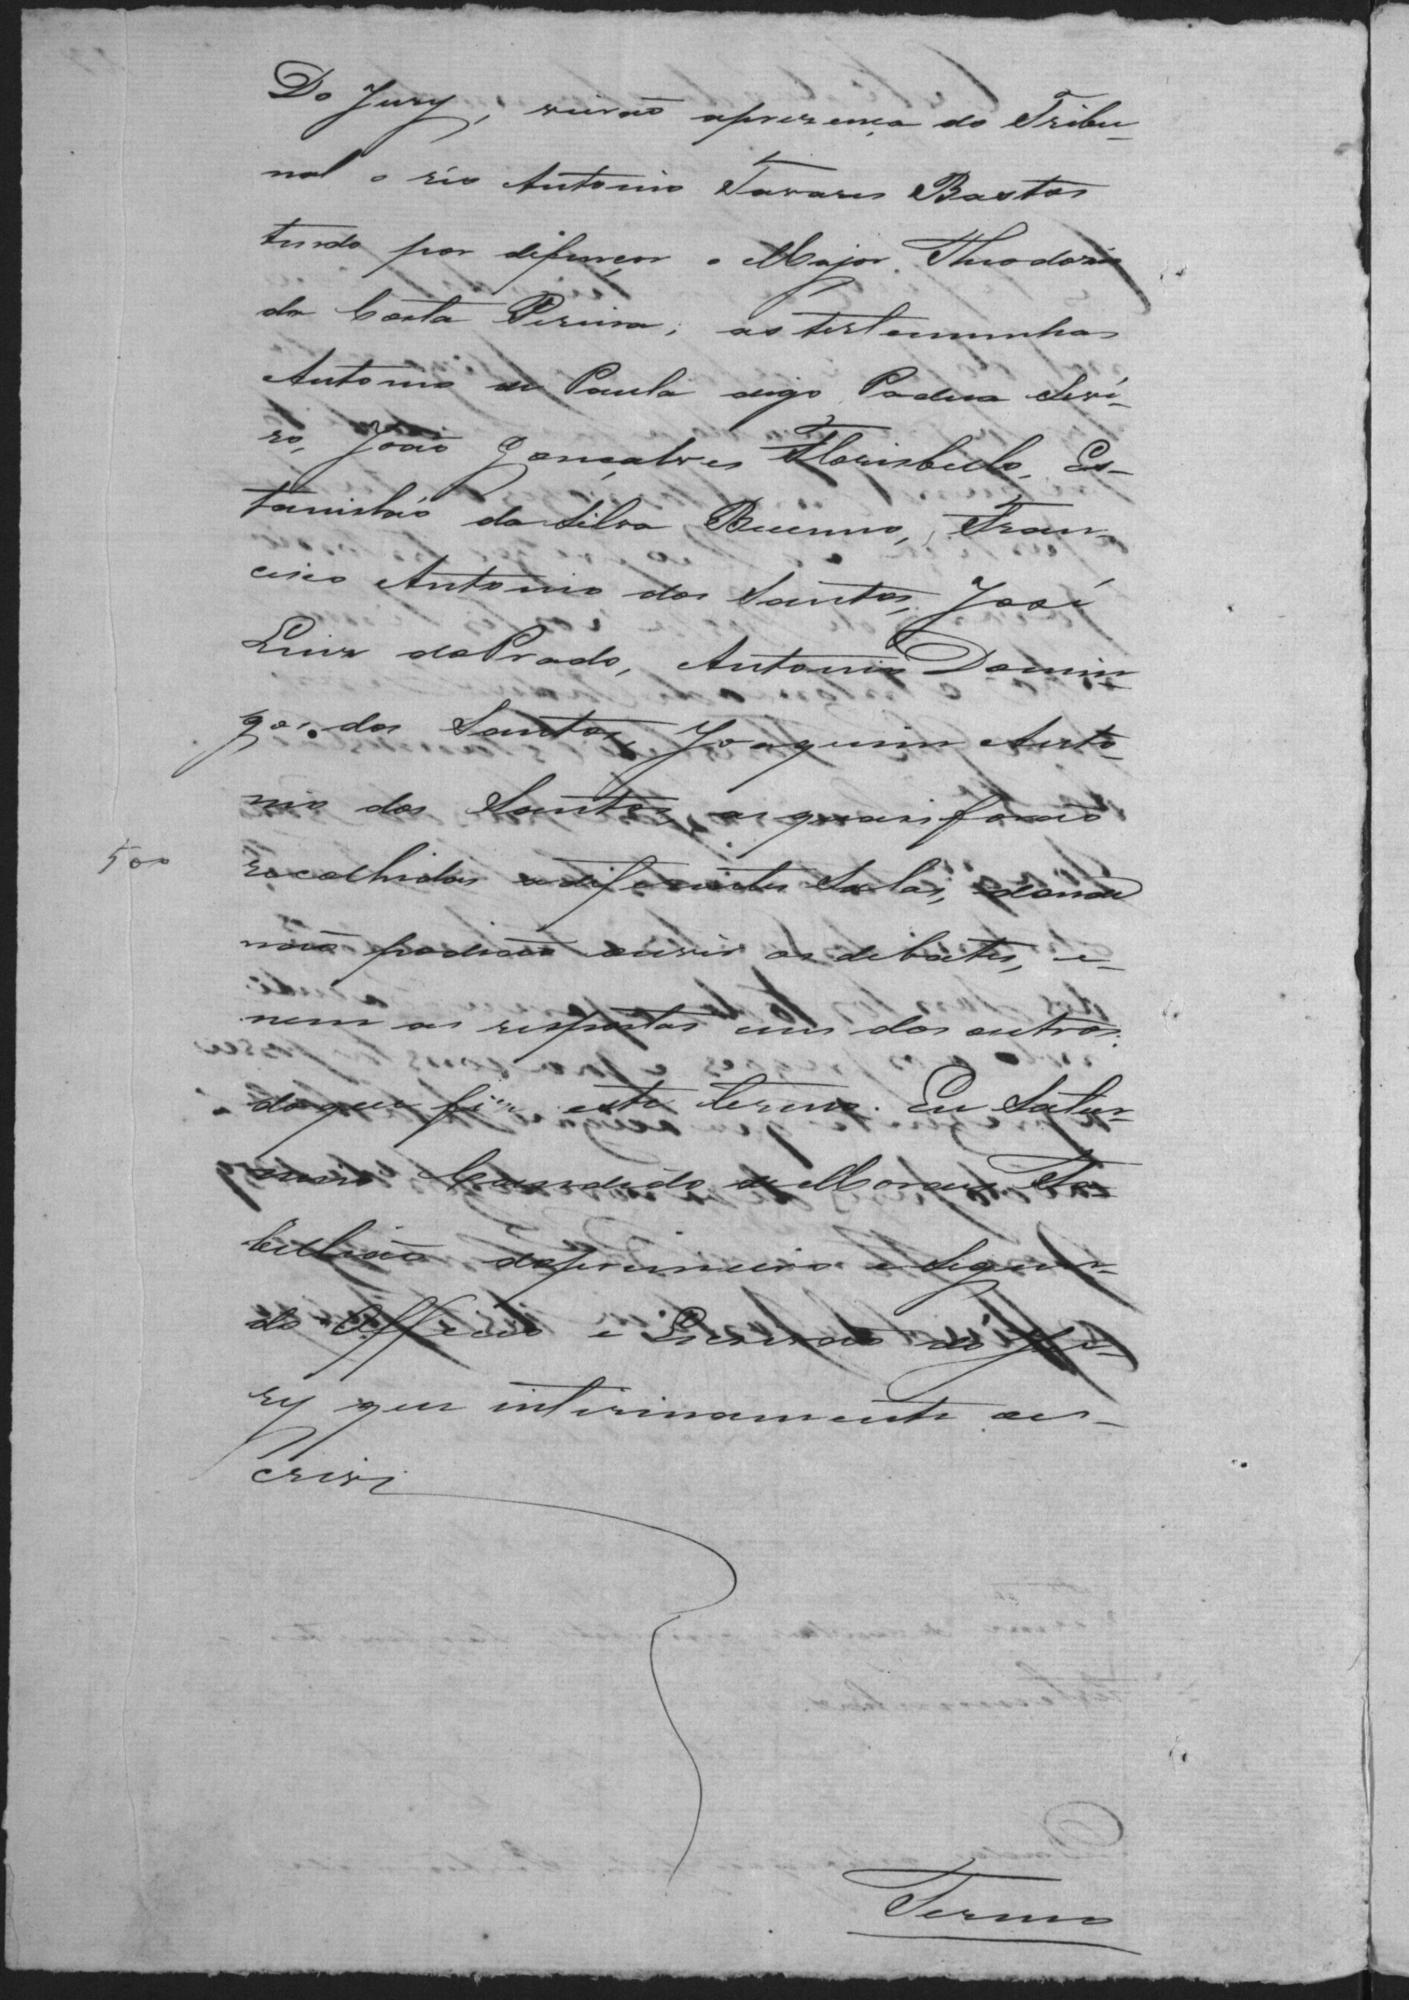 Do Jury, vierão apresença do Tribu-
nal o réo Antonio Tavares Bastos
tendo por difençor o Major Theodorio
da Costa Pereira, as testemunhas
Antonio de Paula digo Padua Seví-
ro, João Gonçalves Florisbello, Es-
tanisláo da Silva Buenno, Fran-
cisco Antonio dos Santos, José
Luiz do Prado, Antonio Domin-
gos dos Santos, Joaquim Anto-
nio dos Santos as quais forão
500
recolhidas adiferentes Salas, donde
não podião ouvir os debates, e-
nem as respostas uns dos outros.
doque fiz este termo. Eu Satur-
nino Candido de Moraes Ta-
bellião doprimeiro e Segun-
do Officio e Escrivão do Ju-
ry que interinamente es-
crivi
Termo